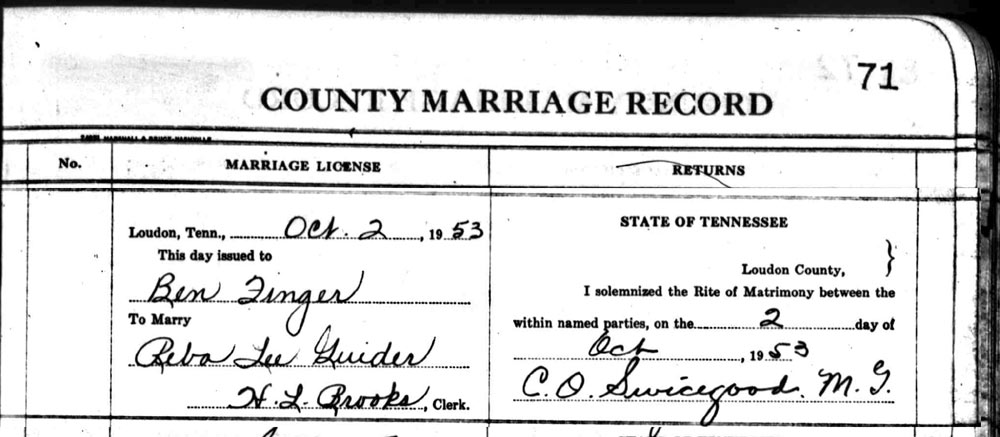 71
COUNTY MARRIAGE RECORD
No.
MARRIAGE LICENSE
RETURNS
Loudon, Tenn., Oct. 2, 1953
This day issued to
Ben Finger
To Marry
Reba Lee Guider
H. L. Brooks, Clerk.
STATE OF TENNESSEE
Loudon County, }
I solemnized the Rite of Matrimony between the
within named parties, on the 2 day of
Oct, 1953
C. O. Swicegood. M. G.